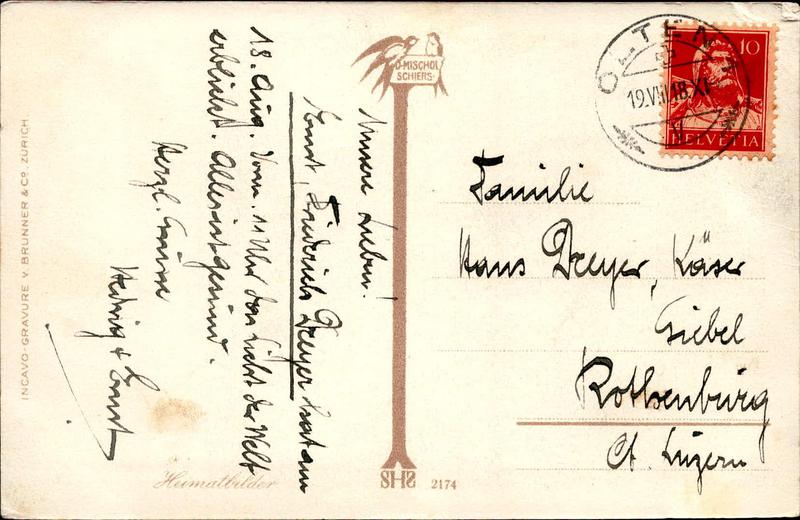 Unsere Lieben!
Ernst, Friederich Dreyer hat am
18. Aug. vorm. 11 Uhr das Licht der Welt
erblickt. Alles ist gesund.
Herzl. Grüsse
Hedwig & Ernst
INCAVO-GRAVURE v. BRUNNER & Co. ZÜRICH.
Heimatbilder
D. MISCHOL
SCHIERS
SHS 2174
OLTEN 1
19.VIII.18.XI
V
10
HELVETIA
Familie
Hans Dreyer, Käser
Giebel
Rothenburg
Ct. Luzern